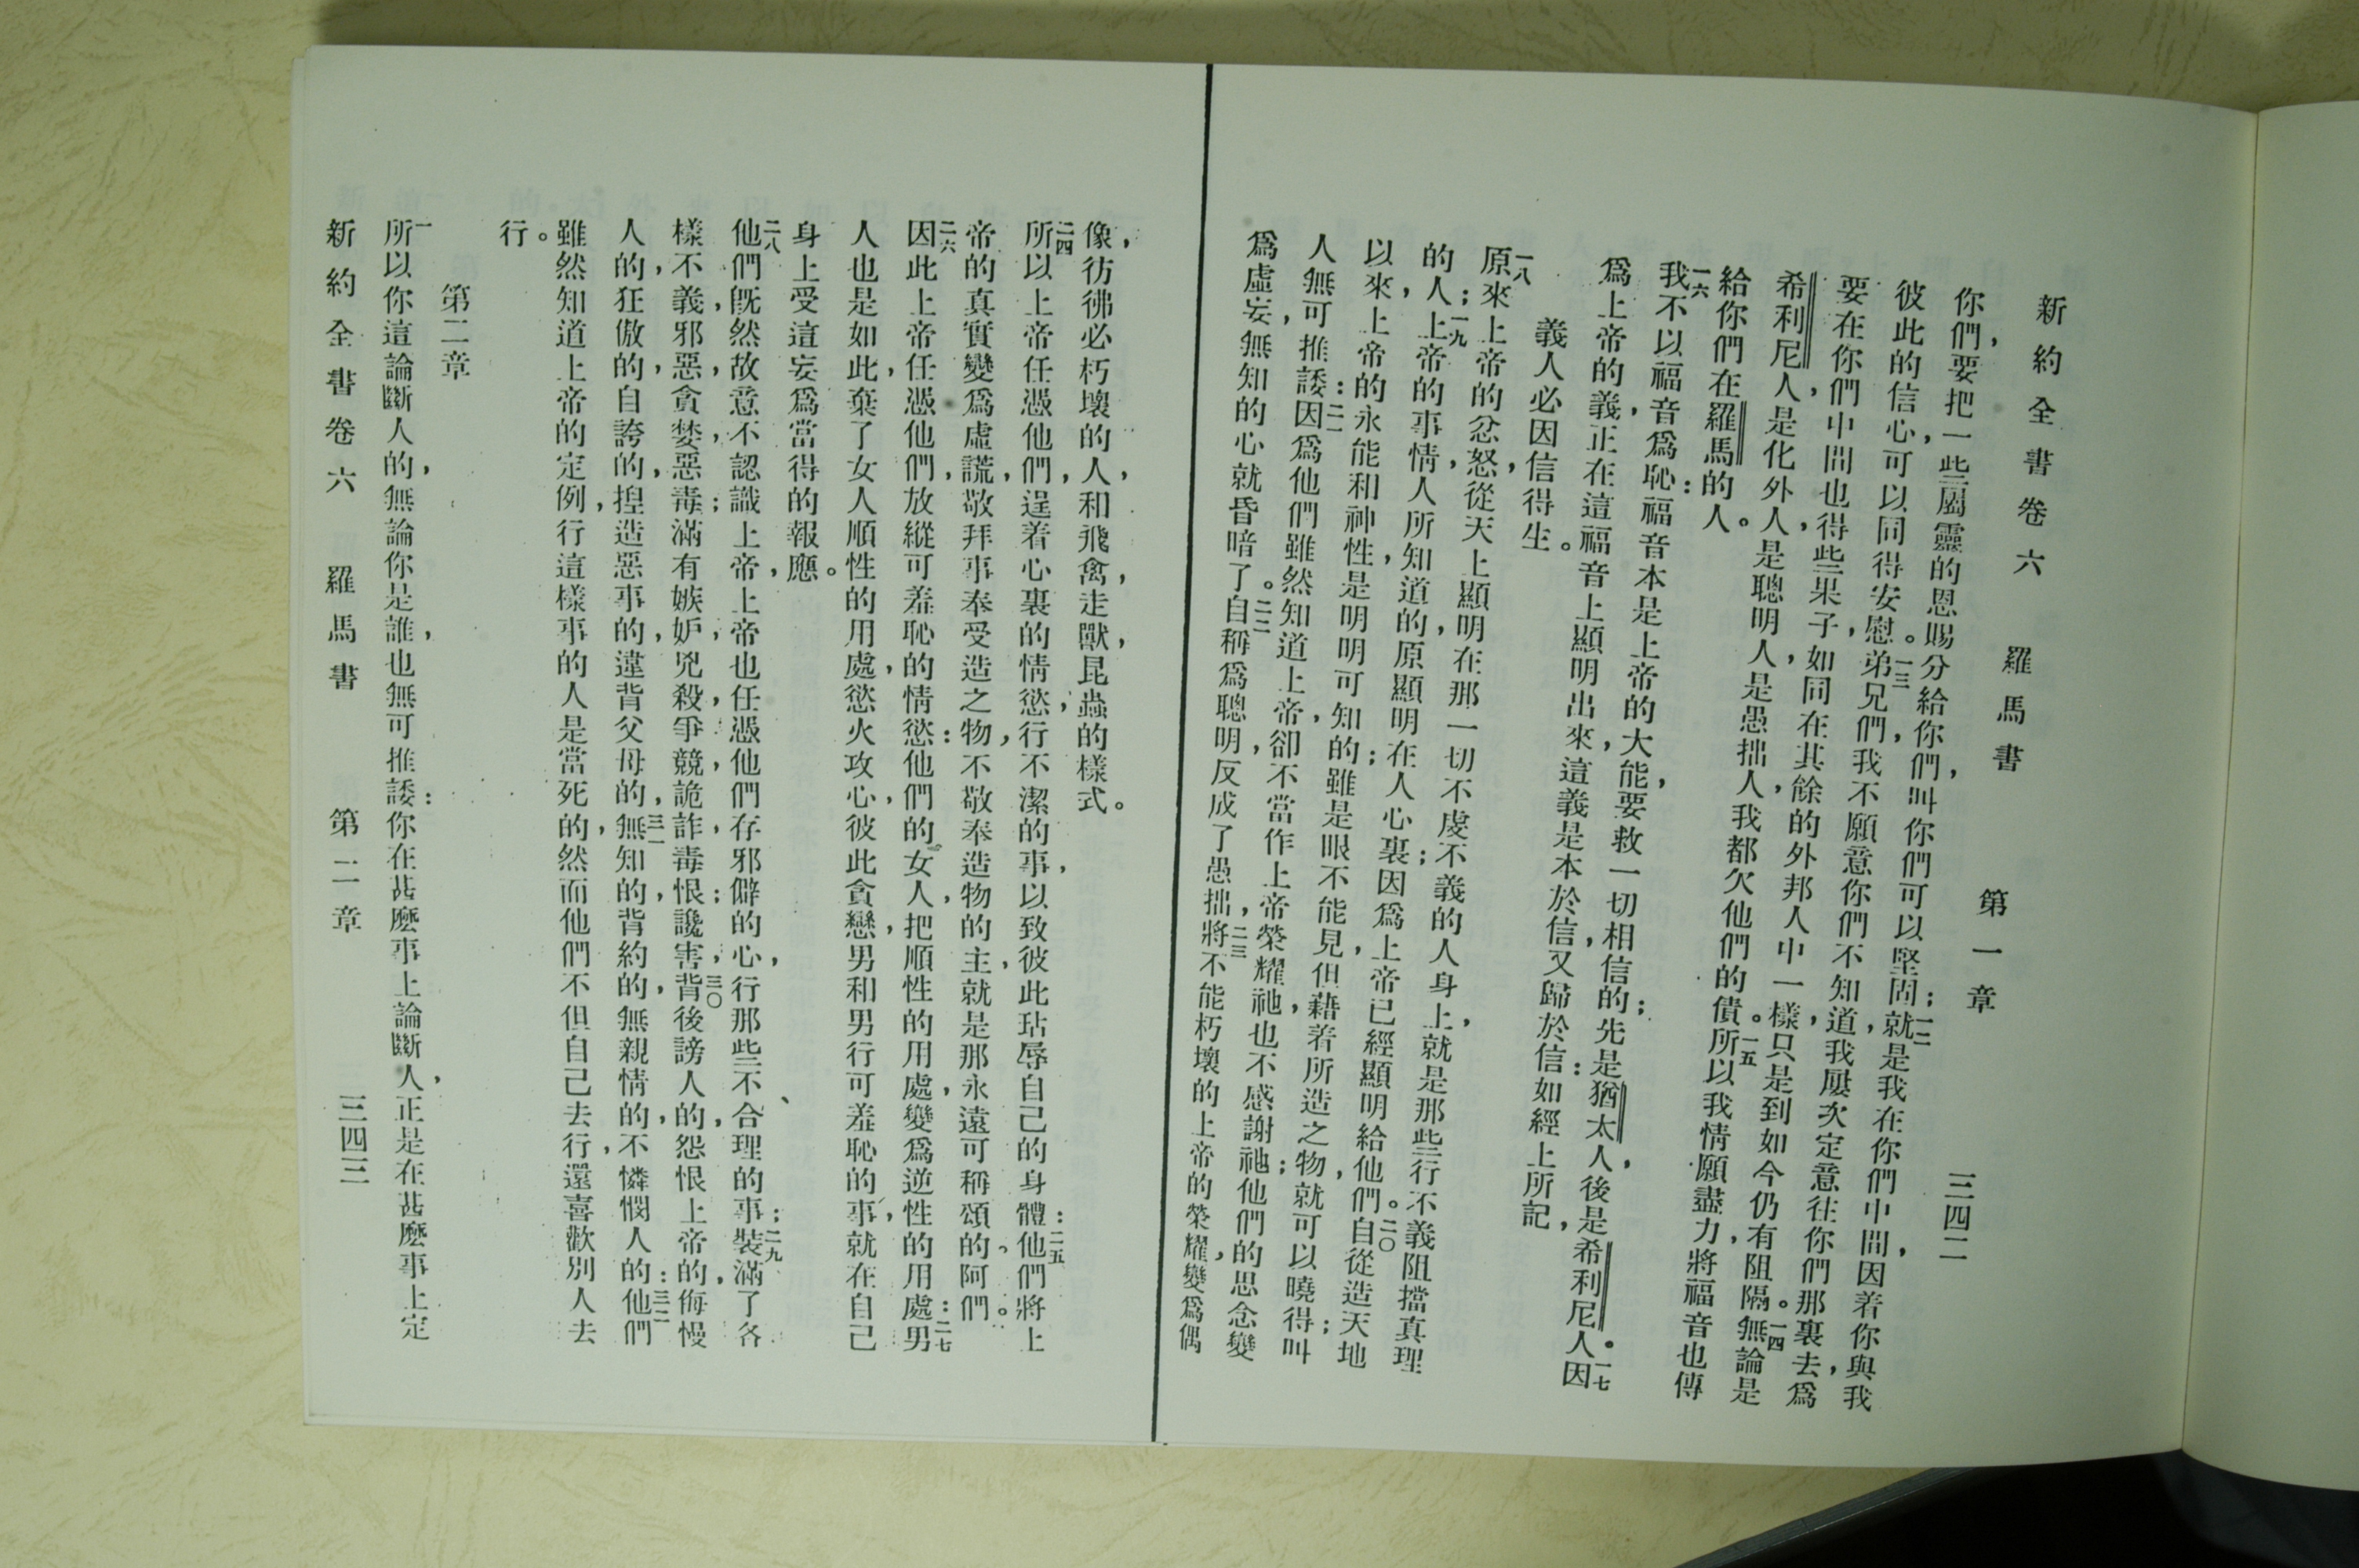 新約全書卷六 羅馬書 第一章 三四二
你們,要把一些屬靈的恩賜分給你們,叫你們可以堅固;一二就是我在你們中間,因着你與我
彼此的信心,可以同得安慰。一三弟兄們,我不願意你們不知道,我屢次定意往你們那裏去,爲
要在你們中間也得些果子,如同在其餘的外邦人中一樣,只是到如今仍有阻隔。一四無論是
希利尼人,是化外人,是聰明人,是愚拙人,我都欠他們的債。一五所以我情願盡力,將福音也傳
給你們在羅馬的人。
一六我不以福音爲恥:福音本是上帝的大能,要救一切相信的;先是猶太人,後是希利尼人。一七因
爲上帝的義,正在這福音上顯明出來,這義是本於信,又歸於信:如經上所記,
義人必因信得生。
一八原來上帝的忿怒,從天上顯明在那一切不虔不義的人身上,就是那些行不義阻擋真理
的人;一九上帝的事情,人所知道的,原顯明在人心裏;因爲上帝已經顯明給他們。二〇自從造天地
以來,上帝的永能和神性,是明明可知的;雖是眼不能見,但藉着所造之物,就可以曉得;叫
人無可推諉:二一因爲他們雖然知道上帝,卻不當作上帝榮耀祂,也不感謝祂;他們的思念變
爲虛妄,無知的心就昏暗了。二二自稱爲聰明,反成了愚拙,二三將不能朽壞的上帝的榮耀,變爲偶
像,彷彿必朽壞的人,和飛禽,走獸,昆蟲的樣式。
二四所以上帝任憑他們,逞着心裏的情慾,行不潔的事,以致彼此玷辱自己的身體:二五他們將上
帝的真實變爲虛謊,敬拜事奉受造之物,不敬奉造物的主,就是那永遠可稱頌的。阿們。
二六因此上帝任憑他們,放縱可羞恥的情慾:他們的女人,把順性的用處,變爲逆性的用處:二七男
人也是如此,棄了女人順性的用處,慾火攻心,彼此貪戀,男和男行可羞恥的事,就在自己
身上受這妄爲當得的報應。
二八他們旣然故意不認識上帝,上帝也任憑他們存邪僻的心,行那些不合理的事;二九裝滿了各
樣不義,邪惡,貪婪,惡毒;滿有嫉妒,兇殺,爭競,詭詐,毒恨;讒害,三〇背後謗人的,怨恨上帝的,侮慢
人的,狂傲的,自誇的,揑造惡事的,違背父母的,三一無知的,背約的,無親情的,不憐憫人的:三二他們
雖然知道上帝的定例,行這樣事的人是當死的,然而他們不但自己去行,還喜歡別人去
行。
第二章
一所以你這論斷人的,無論你是誰,也無可推諉:你在甚麽事上論斷人,正是在甚麽事上定
新約全書卷六 羅馬書 第二章 三四三